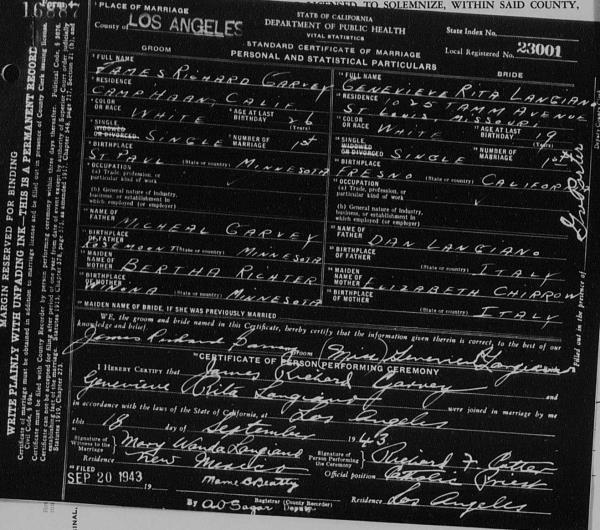 TO SOLEMNIZE, WITHIN SAID COUNTY,
16887
PLACE OF MARRIAGE
County of LOS ANGELES
STATE OF CALIFORNIA
DEPARTMENT OF PUBLIC HEALTH
VITAL STATISTICS
STANDARD CERTIFICATE OF MARRIAGE
PERSONAL AND STATISTICAL PARTICULARS
State Index No.
Local Registered No. 23001
GROOM
BRIDE
FULL NAME JAMES RICHARD GARVEY
FULL NAME GENEVIEVE RITA LANGIANO
RESIDENCE CAMP HAAN, CALIF.
RESIDENCE 1025 TAMM AVENUE
ST LOUIS, MISSOURI
COLOR OR RACE WHITE AGE AT LAST BIRTHDAY 26 (Years)
COLOR OR RACE WHITE AGE AT LAST BIRTHDAY (Years)
SINGLE WIDOWED OR DIVORCED SINGLE NUMBER OF MARRIAGE 1st
SINGLE WIDOWED OR DIVORCED SINGLE NUMBER OF MARRIAGE 1st
BIRTHPLACE ST. PAUL (State or country) MINNESOTA
BIRTHPLACE FRESNO (State or country) CALIFOR
OCCUPATION
(a) Trade, profession, or particular kind of work
OCCUPATION
(a) Trade, profession, or particular kind of work
(b) General nature of industry, business, or establishment in which employed (or employer)
(b) General nature of industry, business, or establishment in which employed (or employer)
NAME OF FATHER MICHEAL GARVEY
NAME OF FATHER LANGIANO
BIRTHPLACE OF FATHER ROSEMOUNT (State or country) MINNESOTA
BIRTHPLACE OF FATHER (State or country) ITALY
MAIDEN NAME OF MOTHER BERTHA RICHTER
MAIDEN NAME OF MOTHER ELIZABETH CHIRROW
BIRTHPLACE OF MOTHER (State or country) MINNESOTA
BIRTHPLACE OF MOTHER (State or country) ITALY
MAIDEN NAME OF BRIDE, IF SHE WAS PREVIOUSLY MARRIED
WE, the groom and bride named in this Certificate, hereby certify that the information given therein is correct, to the best of our
knowledge and belief.
James Richard Garvey Groom (Miss) Genevieve Langiano
CERTIFICATE OF PERSON PERFORMING CEREMONY
I HEREBY CERTIFY that James Richard Garvey and
Genevieve Rita Langiano were joined in marriage by me
in accordance with the laws of the State of California, at Los Angeles
this 18 day of September 1943
Signature of Witness to the Marriage Mary Wanda Langiano
Signature of Person Performing the Ceremony Richard F. Cotter
Residence New Mexico
Official position Catholic Priest
FILED
SEP 20 1943 19
Mame B Beatty
Registrar (County Recorder)
Residence Los Angeles
By Deputy
MARGIN RESERVED FOR BINDING
WRITE PLAINLY WITH UNFADING INK—THIS IS A PERMANENT RECORD
Filled out in the presence of